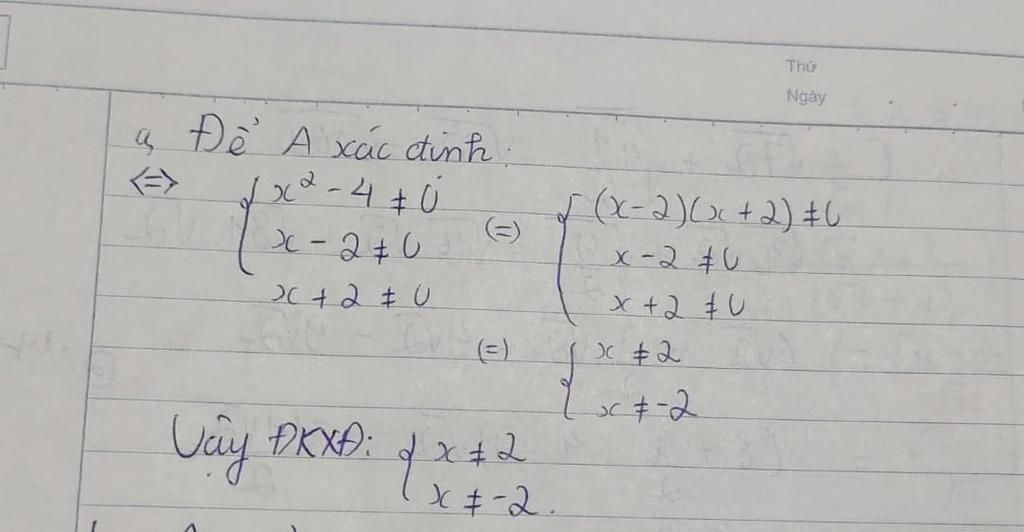 Thứ
Ngày
a, Để A xác định:
<=> { x² - 4 ≠ 0 (=) { (x-2)(x+2) ≠ 0
x - 2 ≠ 0 x - 2 ≠ 0
x + 2 ≠ 0 x + 2 ≠ 0
(=) { x ≠ 2
x ≠ -2
Vậy ĐKXĐ: { x ≠ 2
x ≠ -2.